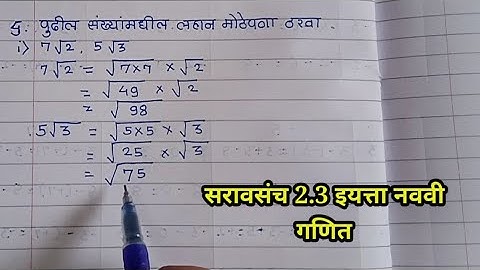 5. पुढील संख्यांमधील लहान मोठेपणा ठरवा.
i) 7√2, 5√3
7√2 = √7×7 × √2
= √49 × √2
= √98
5√3 = √5×5 × √3
= √25 × √3
= √75
सरावसंच 2.3 इयत्ता नववी
गणित